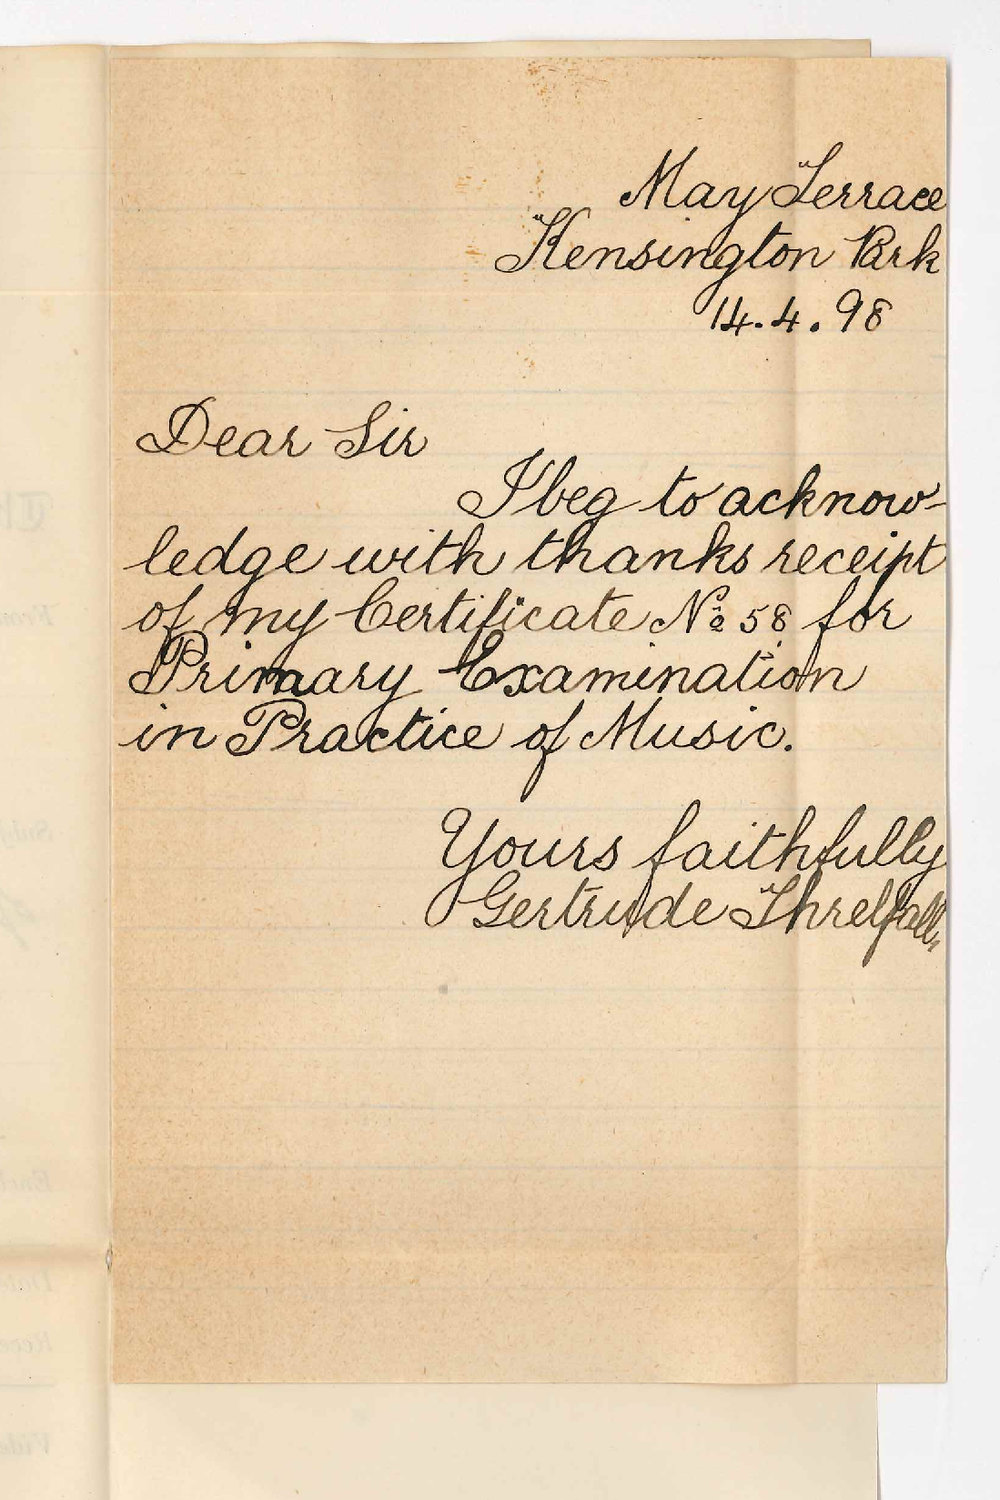 May Terrace
Kensington Park
14.4.98
Dear Sir
I beg to acknow-
ledge with thanks receipt
of my Certificate No 58 for
Primary Examination
in Practice of Music.
Yours faithfully
Gertrude Threlfall.